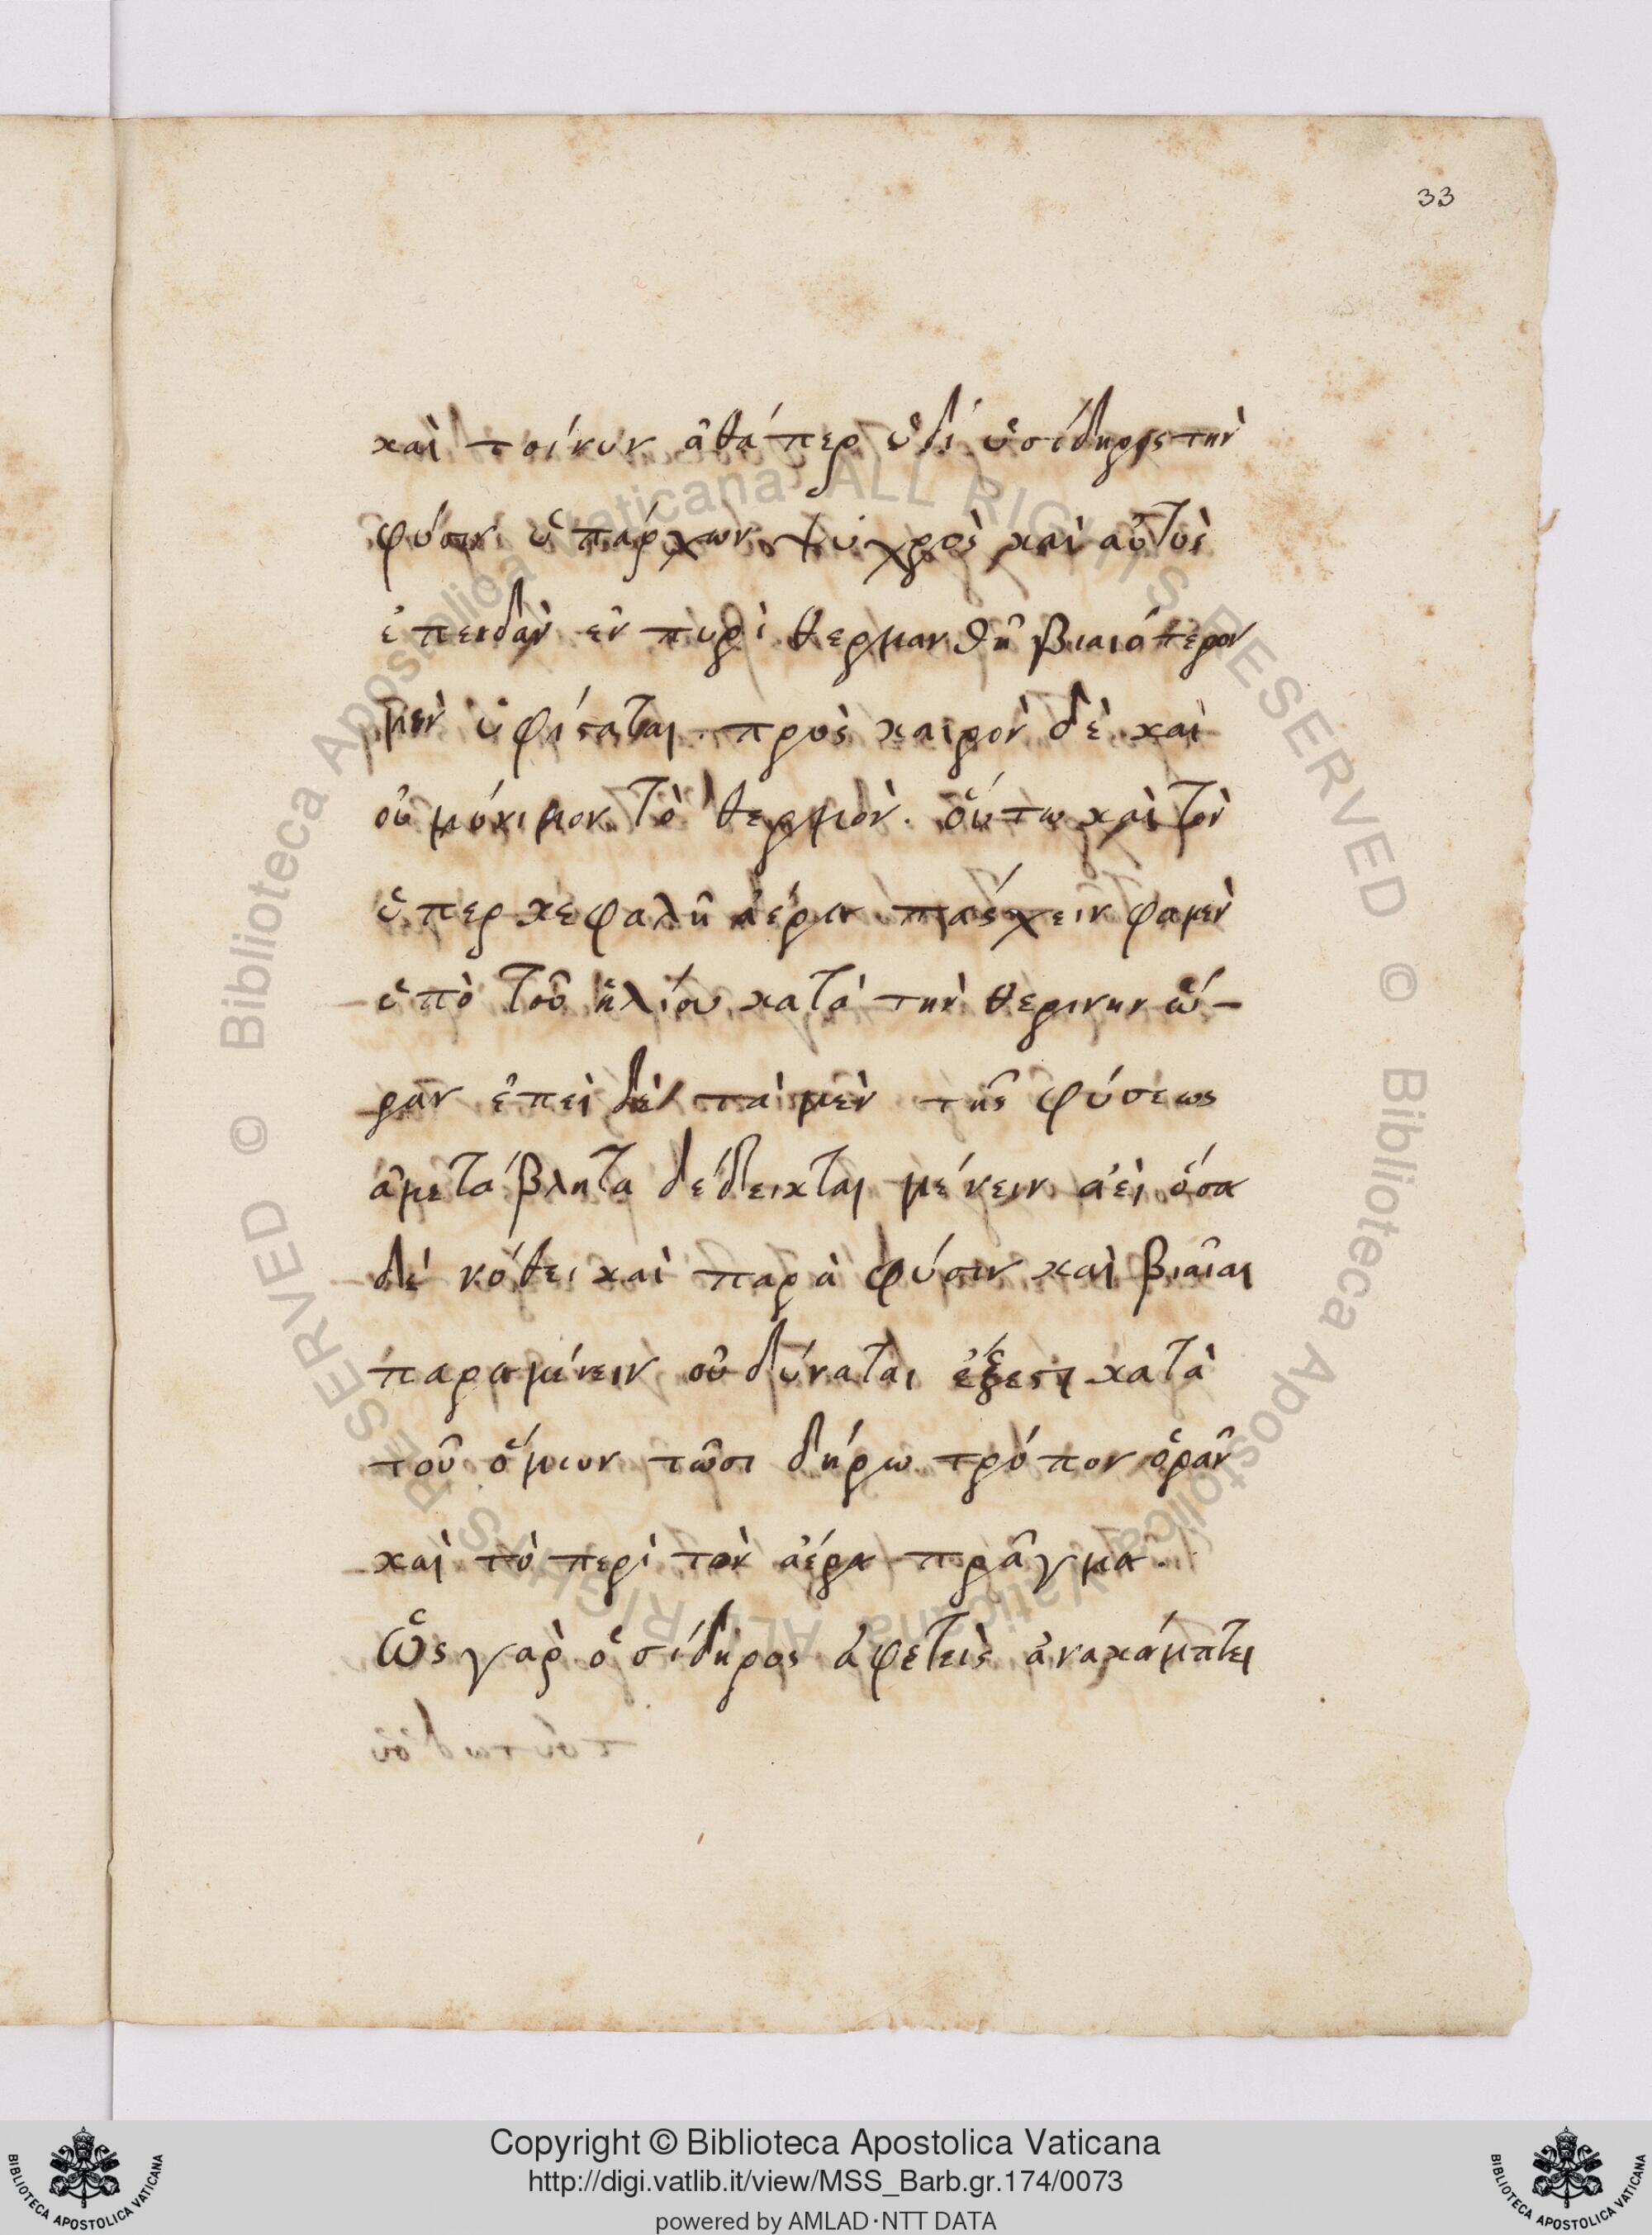 33
καὶ τοίνυν ἀθάπερ ὁδὶ ὁ σίδηρος τὴν
φύσιν ὑπάρχων ψυχρὸς καὶ αὐτὸς
ἐπειδὰν ἐν πυρὶ θερμανθῆ βιαιότερον
μὲν ὑφίσταται πρὸς καιρὸν δὲ καὶ
οὐ μόνιμον τὸ θερμὸν. οὕτω καὶ τὸν
ὑπερ κεφαλῆ ἀέρα πάσχειν φαμὲν
ὑπὸ τοῦ ἡλίου κατὰ τὴν θερινην ὥ-
ραν ἐπεὶ δὲ τὰ μὲν τῆς φύσεως
ἀμετάβλητα δέδεικται μένειν ἀεὶ ὅσα
δὲ νόθει καὶ παρὰ φύσιν καὶ βιαῖαι
παραμένειν οὐ δύναται ἔξεστι κατὰ
τοῦ ὅμιον τῶσι δήρω τρόπον ὁρᾶν
καὶ τὸ περὶ τὸν ἀέρα πρᾶγμα.
Ὡς γαρ ὁ σίδηρος ἀφετεὶς ἀνακάμπτει
Copyright © Biblioteca Apostolica Vaticana
http://digi.vatlib.it/view/MSS_Barb.gr.174/0073
powered by AMLAD·NTT DATA
BIBLIOTECA APOSTOLICA VATICANA
BIBLIOTECA APOSTOLICA VATICANA
© Biblioteca Apostolica Vaticana ALL RIGHTS RESERVED
© Biblioteca Apostolica Vaticana ALL RIGHTS RESERVED